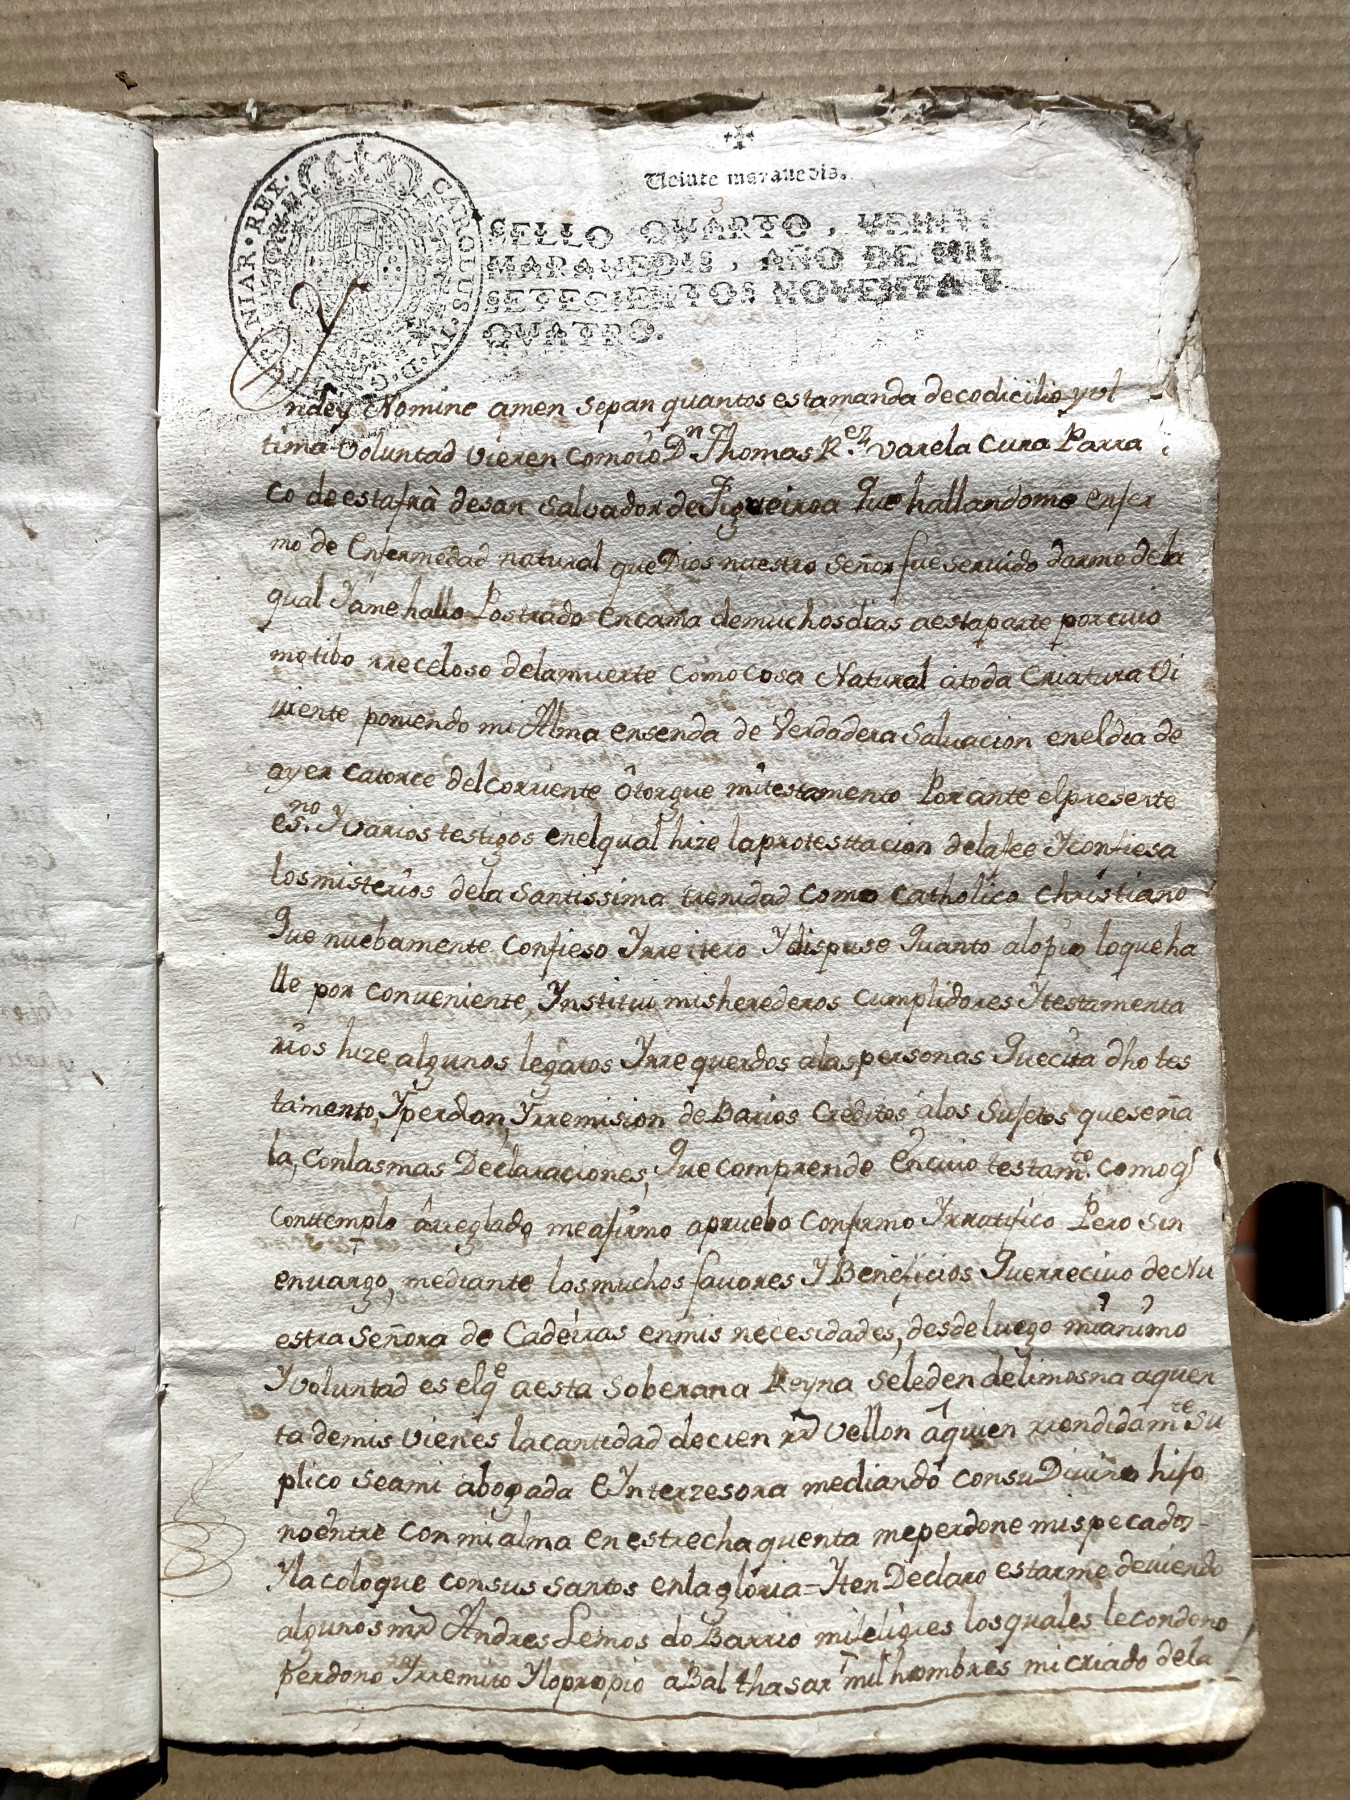 Veinte maravedis.
SELLO QVARTO, VEINTE
MARAVEDIS, AÑO DE MIL
SETECIENTOS NOVENTA Y
QVATRO.
CAROLUS·IV·D·G· HISPANIAR·REX·
Yndey Nomine amen sepan quantos estamanda decodicilio yul
tima Voluntad vieren como io Dn. Thomas Rez. varela cura Parra
co deestafrã desan Salvador deFigueiroa Que hallandome enfer
mo de Enfermedad natural que Dios nuestro Señor fueservido darme dela
qual Yame hallo Postrado encama demuchosdias aestaparte porcuio
motibo rreceloso delamuerte como cosa Natural atoda Criatura Vi
viente poniendo mi Alma ensenda de Verdadera Salvacion eneldia de
ayer catorce delcorriente ôtorgue mitestamento Por ante elpresente
esno. Yvarios testigos enelqual hize laprotesttacion delafee Yconfiesa
losmisterios dela Santissima trenidad como catholico christiano
Que nuebamente confieso Yrreitero Ydispuse Quanto alopio loqueha
lle por conveniente, Ynstitui misherederos cumplidores Ytestamenta
rios hize algunos legatos Yrrequerdos alaspersonas Quecita dho tes
tamento, Yperdon, Yrremision de Barios Creditos alos Sufetos queseña
la, conlasmas Declaraciones, Que comprende Encuio testamto. comoq
contemplo ârreglado meafirmo apruebo confirmo Yrratifico Pero sin
envargo, mediante losmuchos favores Y Beneficios Querrecivo deNu
estra Señora de Cadeiras enmis necesidades, desdeluego mianimo
Yvoluntad es elqe aesta Soberana Reyna seleden delimosna aquen
ta demis vienes lacantidad decien rr Vellon âquien rrendidamte Su
plico seami abogada e Ynterzesora mediando consu Divino hifo
noentre conmialma en estrecha quenta meperdone mispecados
Ylacoloque consus santos enlagloria = Yten Declaro estarme deviendo
algunos mrs Andres Lemos do Barrio mifeligres losquales lecondono
perdono Yrremito Ylopropio aBalthasar milhombres micriado dela